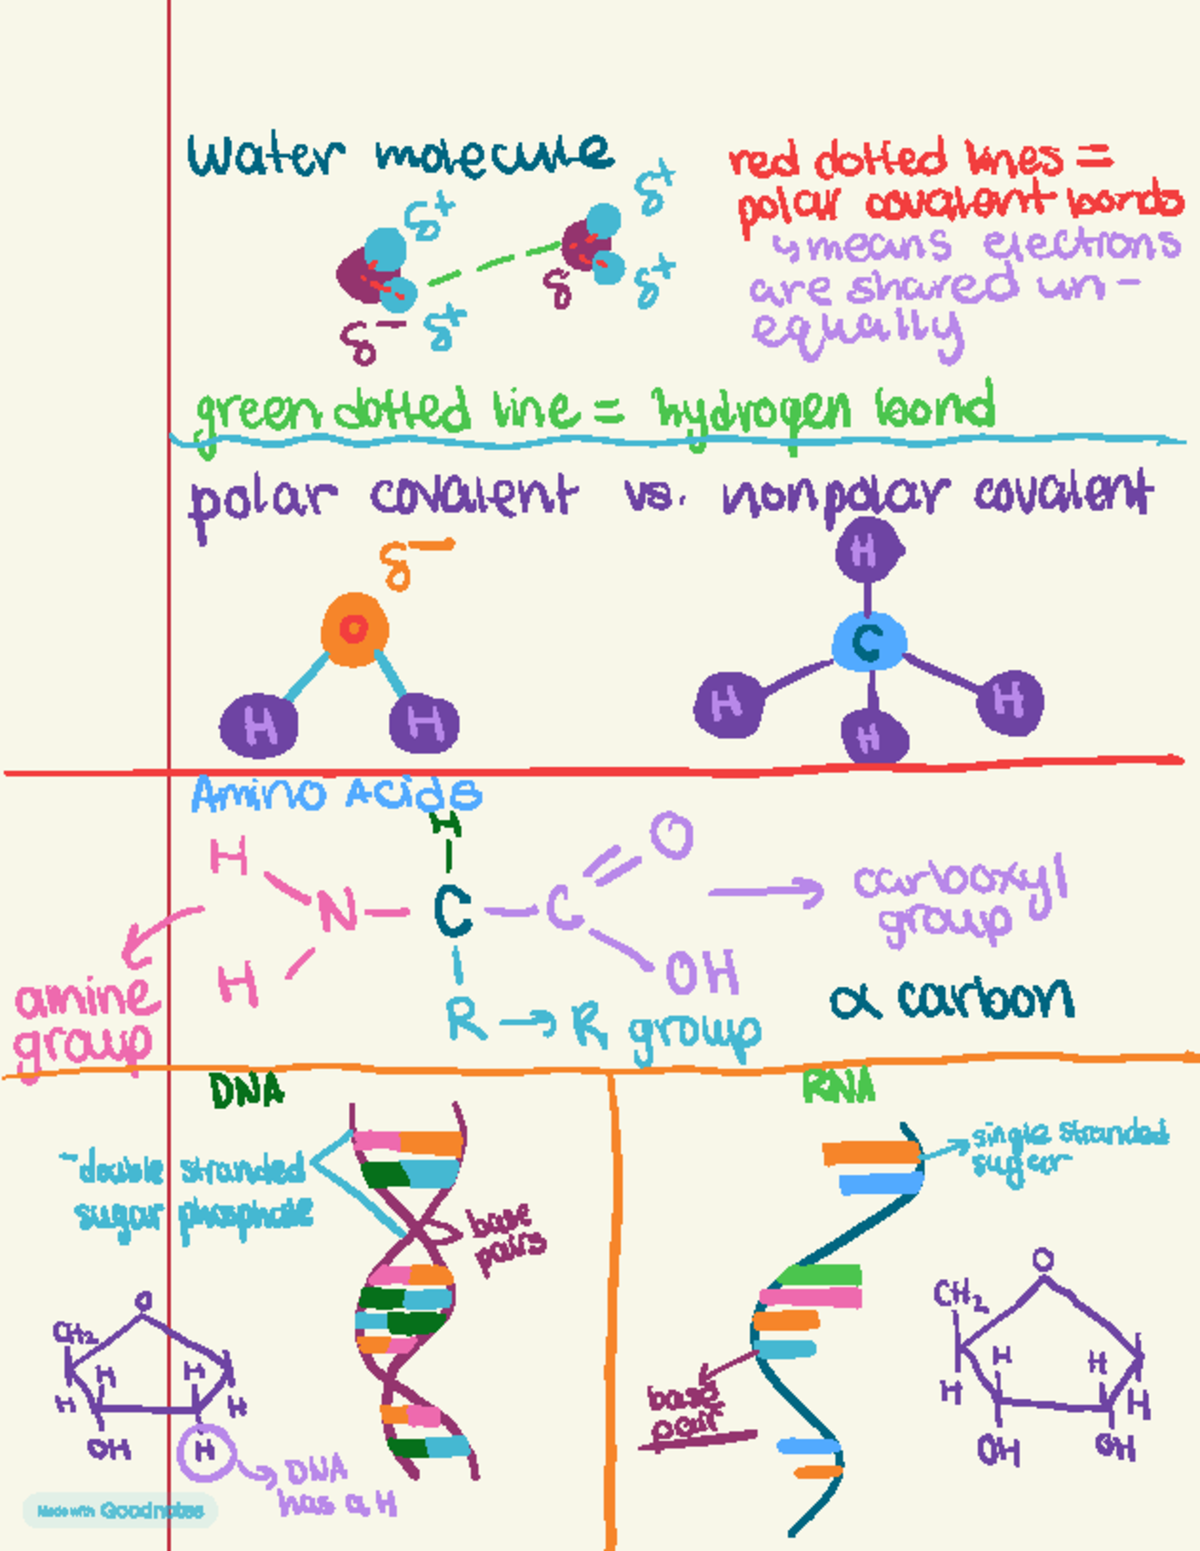 water molecule
δ+
δ+
δ-
δ+
δ
δ+
red dotted lines =
polar covalent bonds
↳ means electrons
are shared un-
equally
green dotted line = hydrogen bond
polar covalent vs. nonpolar covalent
δ-
O
H H
H
C
H H
H
Amino Acids
H
H
N - C - C
O
OH
H
R → R group
amine
group
→ carboxyl
group
α carbon
DNA
- double stranded
sugar phosphate
base
pairs
O
CH2
H H
H H
OH H
→ DNA
has a H
RNA
→ single stranded
sugar
base
pair
O
CH2
H H
H H
OH OH
Made with Goodnotes